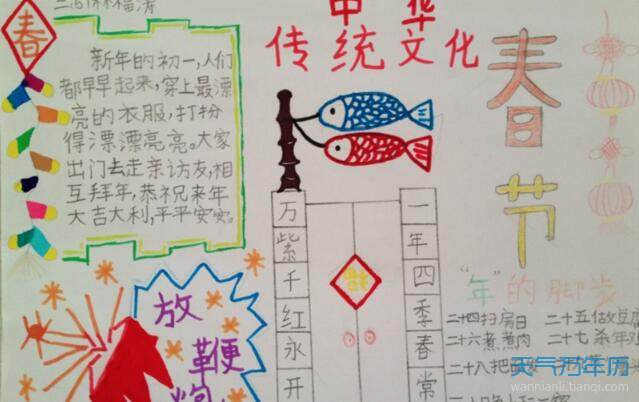 春
新年的初一，人们
都早早起来，穿上最漂
亮的衣服，打扮
得漂漂亮亮。大家
出门去走亲访友，相
互拜年，恭祝来年
大吉大利，平平安安。
中华
传统文化
春节
万紫千红永开
一年四季春常
放
鞭
炮
"年"的脚步
二十四扫房日
二十五做豆腐
二十六煮煮肉
二十七杀年鸡
二十八把
天气万年历
wannianli.tianqi.com